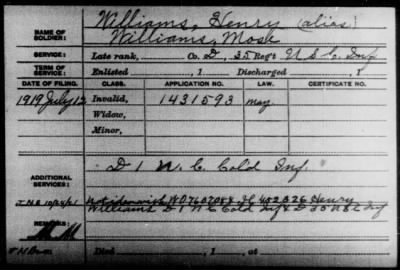 Williams, Henry (alias)
NAME OF SOLDIER: Williams, Mose
SERVICE: Late rank, Co. D, 35 Reg't U S C. Inf
TERM OF SERVICE: Enlisted , 1 Discharged , 1
DATE OF FILING. CLASS. APPLICATION NO. LAW. CERTIFICATE NO.
1919 July 12 Invalid, 1431593 may
Widow,
Minor,
D 1 N. C. Cold Inf.
ADDITIONAL SERVICES:
Henry
Williams D 1 N C Cold Inf & D 35 U S C Inf
REMARKS:
Died , 1 , at